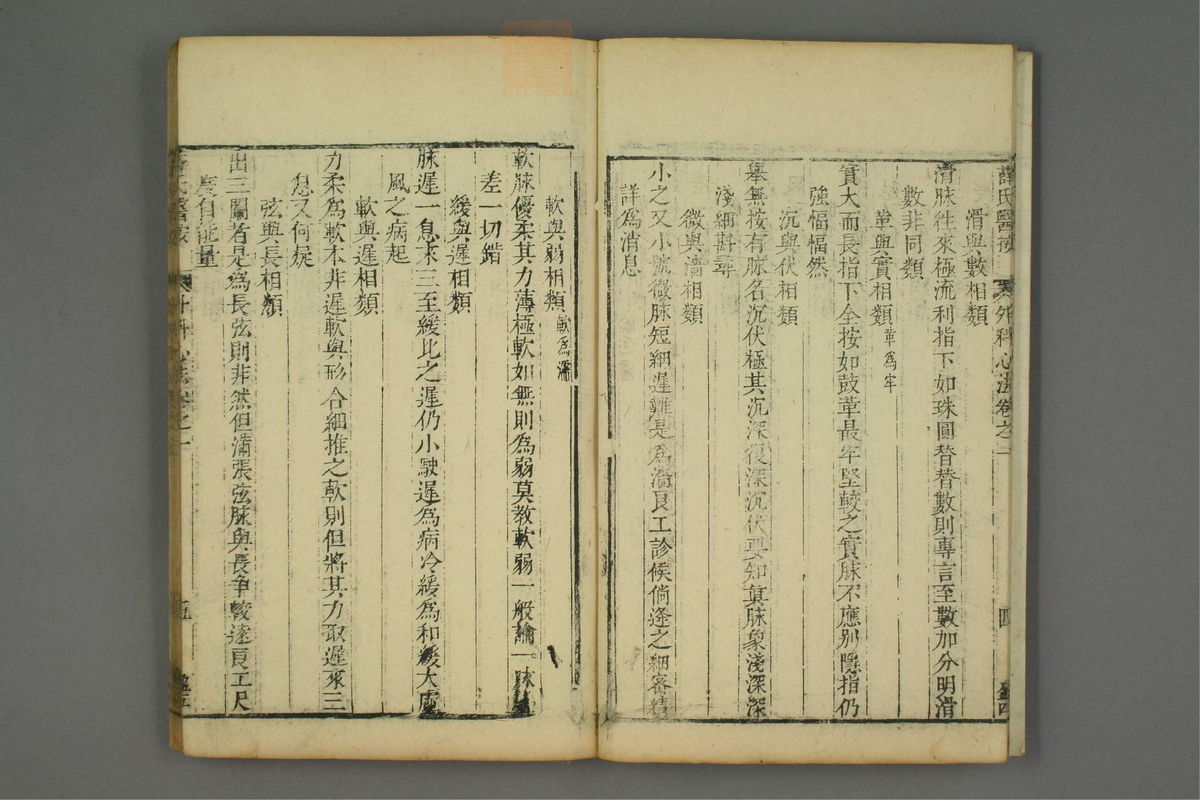 薛氏醫按
外科心法卷之二
四
滑與數相類
滑脉徃來極流利指下如珠圓替替數則專言至數加分明滑
數非同類
革與實相類革為牢
實大而長指下全按如鼓革最牢堅較之實脉不應别隱指仍
強愊愊然
沉與伏相類
舉無按有脉名沉伏極其沉深復深沉伏要知眞脉象淺深深
淺細斟尋
微與濇相類
小之又小號微脉短細遲難是為濇良工診候倘逢之細密精
詳為消息
軟與弱相類軟為濡
軟脉優柔其力薄極軟如無則為弱莫教軟弱一般論一脉
差一切錯
緩與遲相類
脉遲一息來三至緩比之遲仍小駛遲為病冷緩為和緩大處
風之病起
軟與遲相類
力柔為軟本非遲軟與形合細推之軟則但將其力取遲來三
息又何疑
弦與長相類
出三關者是為長弦則非然但滿張弦脉與長争較遠良工尺
度自能量
薛氏醫按
外科心法卷之二
五